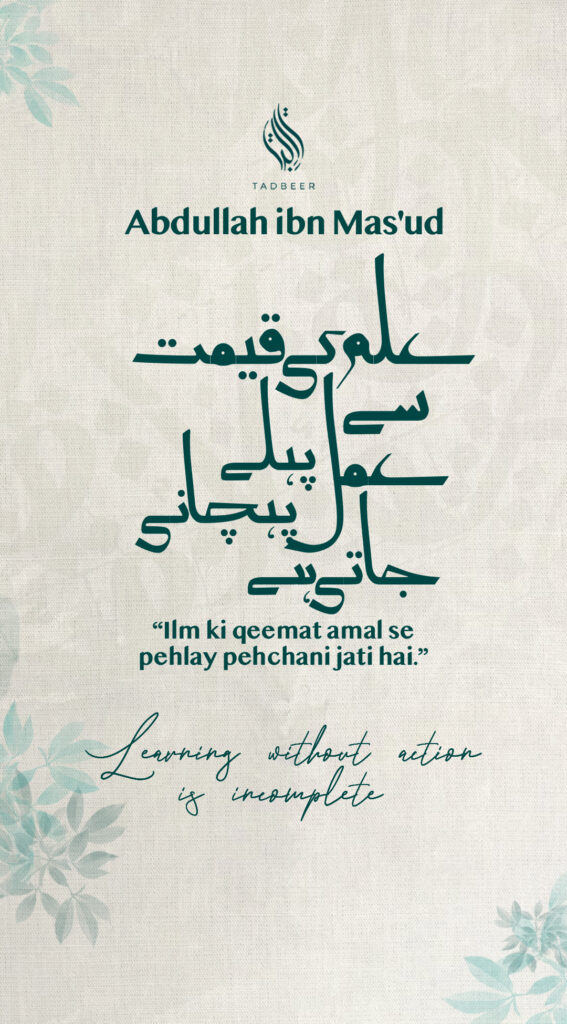 TADBEER
Abdullah ibn Mas'ud
علم کی قیمت
سے
عمل پہلے
پہچانی
جاتی ہے
“Ilm ki qeemat amal se
pehlay pehchani jati hai.”
Learning without action
is incomplete